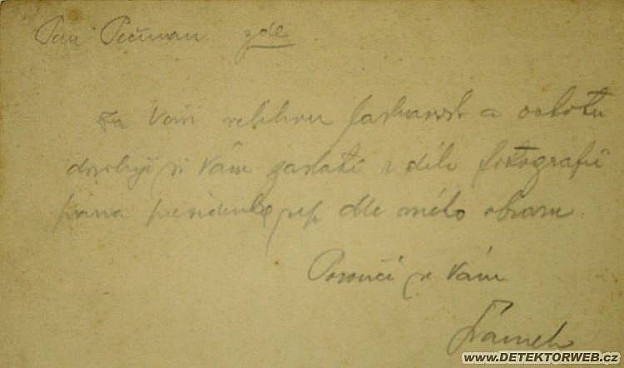 Pan Pečman zde
Za Vaši velikou laskavost a ochotu
dovoluji si Vám zaslati v díle fotografii
pana presidenta rep dle mého obrazu.
Poroučí se Vám
Šrámek
WWW.DETEKTORWEB.CZ